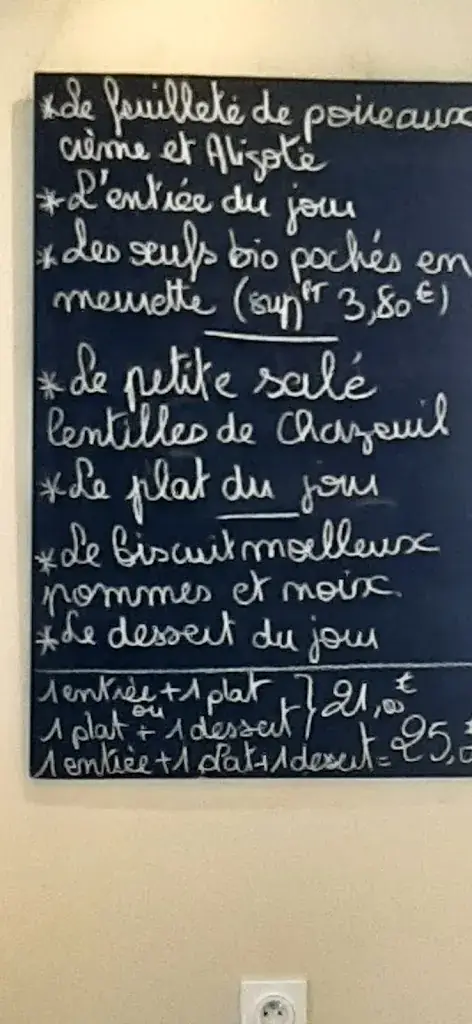 *Le feuilleté de poireaux
crème et Aligoté
*L'entrée du jour
*Les œufs bio pochés en
meurette (supPT 3,80€)
*Le petite salé
lentilles de Chazeuil
*Le plat du jour
*Le biscuit moelleux
pommes et noix
*Le dessert du jour
1 entrée + 1 plat } 21,00€
ou
1 plat + 1 dessert
1 entrée + 1 plat + 1 dessert = 25,0